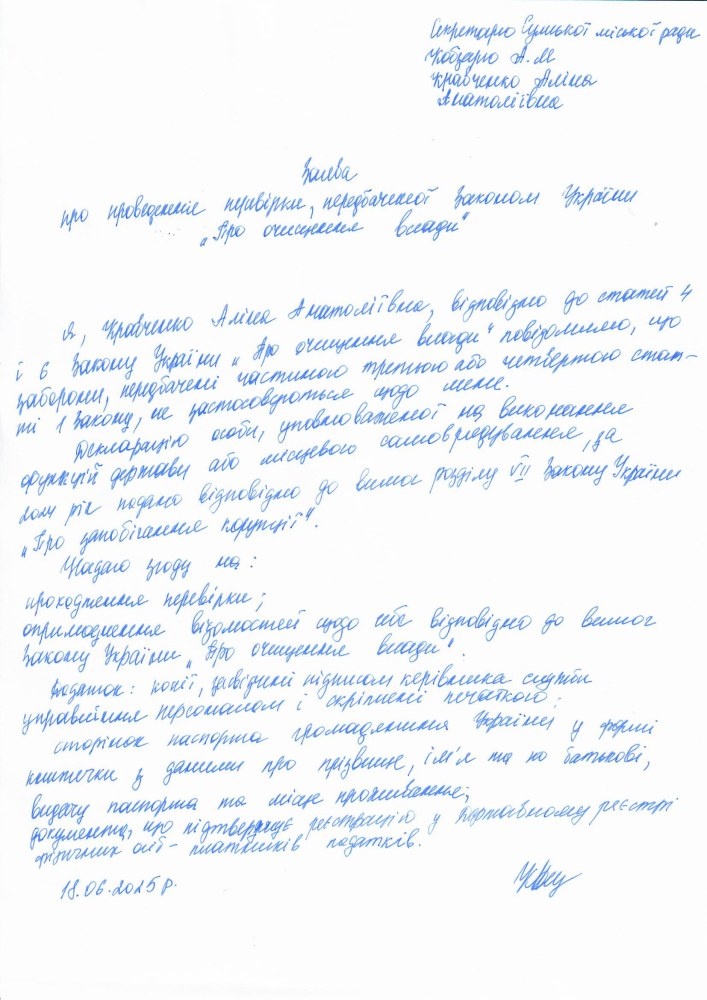 Секретарю Сумської міської ради
Кобзарю А.М
Кравченко Аліна
Анатоліївна
Заява
про проведення перевірки, передбаченої Законом України
„Про очищення влади"
Я, Кравченко Аліна Анатоліївна, відповідно до статей 4
і 6 Закону України „Про очищення влади" повідомляю, що
заборони, передбачені частиною третьою або четвертою стат-
ті 1 Закону, не застосовуються щодо мене.
Декларацію особи, уповноваженої на виконання
функцій держави або місцевого самоврядування, за
2024 рік подано відповідно до вимог розділу VII Закону України
„Про запобігання корупції".
Надаю згоду на:
проходження перевірки;
оприлюднення відомостей щодо себе відповідно до вимог
Закону України „Про очищення влади".
Додаток: копії, засвідчені підписом керівника служби
управління персоналом і скріплені печаткою:
сторінок паспорта громадянина України у формі
книжечки з даними про прізвище, ім'я та по батькові,
видачу паспорта та місце проживання;
документа, що підтверджує реєстрацію у Державному реєстрі
фізичних осіб - платників податків.
18.06.2025 р.